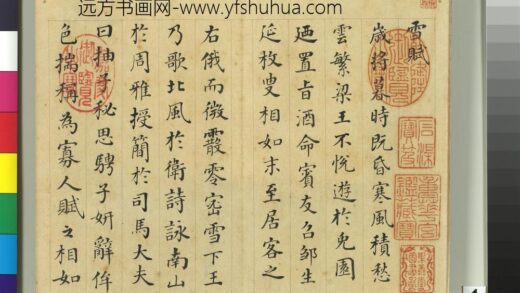 远方书画网-www.yfshuhua.com
雪賦
歲將暮時既昏寒風積愁
雲繁梁王不悅遊於兔園
迺置旨酒命賓友召鄒生
延枚叟相如末至居客之
右俄而微霰零密雪下王
乃歌北風於衛詩詠南山
於周雅授簡於司馬大夫
曰抽子秘思騁子妍辭侔
色揣稱為寡人賦之相如
石渠
寶笈